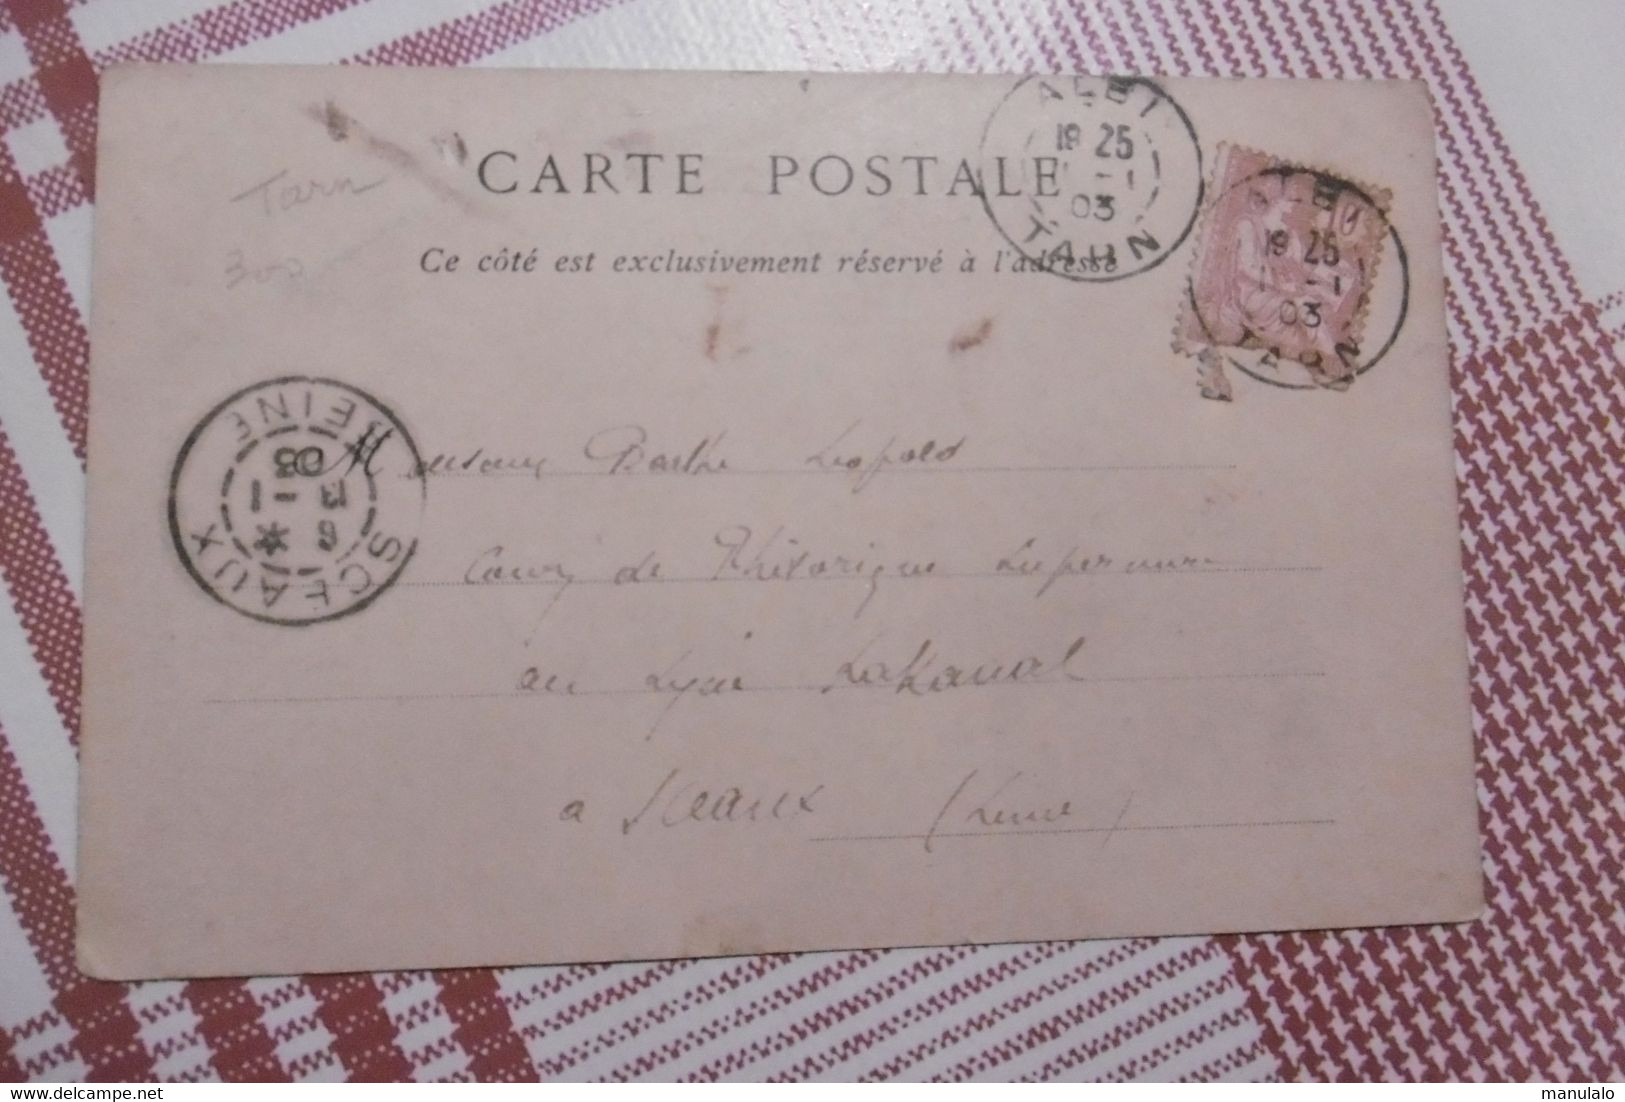 ALBI
19 25
1 -1
03
TARN
ALBI
19 25
1 -1
03
TARN
10
CARTE POSTALE
Tarn
300
Ce côté est exclusivement réservé à l'adresse
SCEAUX
6 *
3 -1
03
SEINE
Monsieur Barthe Léopold
Cours de Rhétorique Supérieure
au Lycée Lakanal
a Sceaux (Seine)
delcampe.net
manulalo